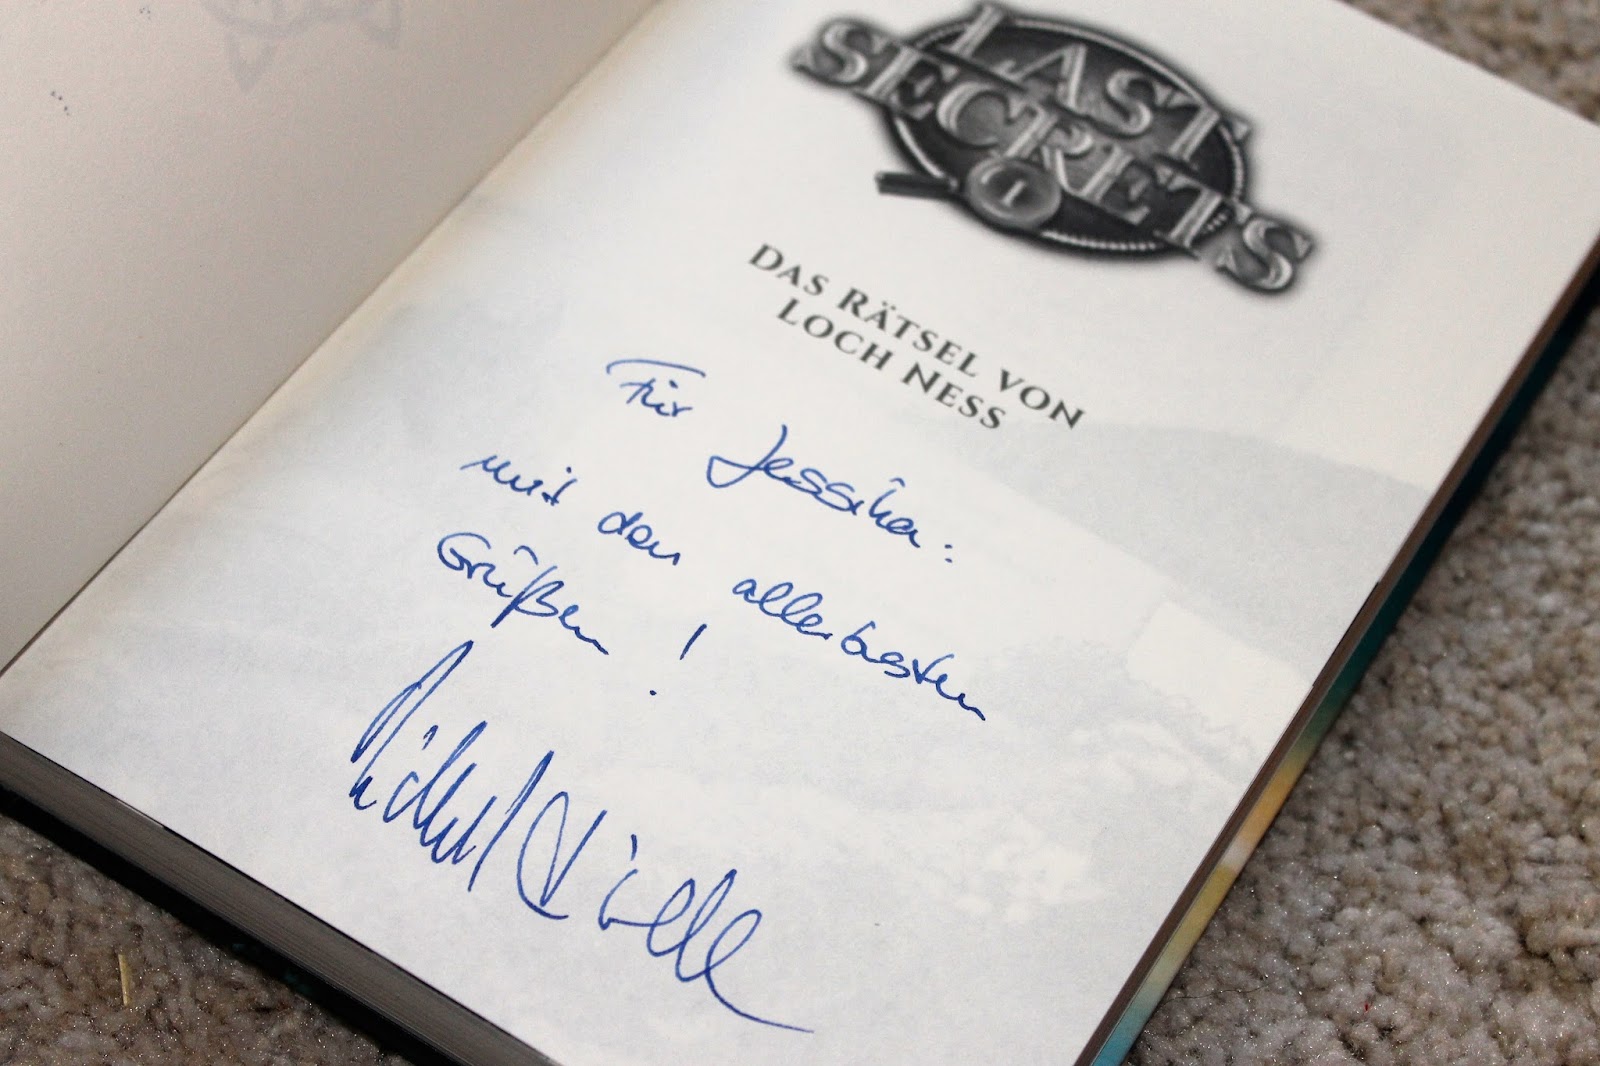 LAST
SECRETS
1
DAS RÄTSEL VON
LOCH NESS
Für Jessika:
mit den allerbesten
Grüßen!